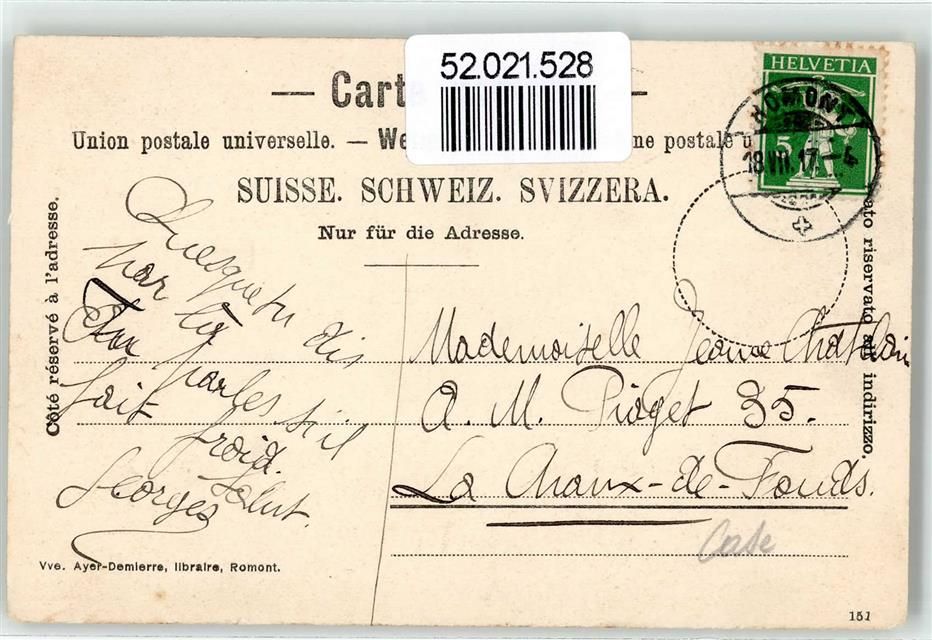 52.021.528
Carte
HELVETIA
5
ROMONT
18.VII.17.-4
Union postale universelle. — We ne postale u
SUISSE. SCHWEIZ. SVIZZERA.
Nur für die Adresse.
Côté réservé à l'adresse.
ato riservato all' indirizzo.
dis
par
Tu parles s'il
fait froid.
Salut.
Georges
Mademoiselle Jeanne Chatelain
A. M. Piaget 35.
La Chaux-de-Fonds.
Vve. Ayer-Demierre, libraire, Romont.
151